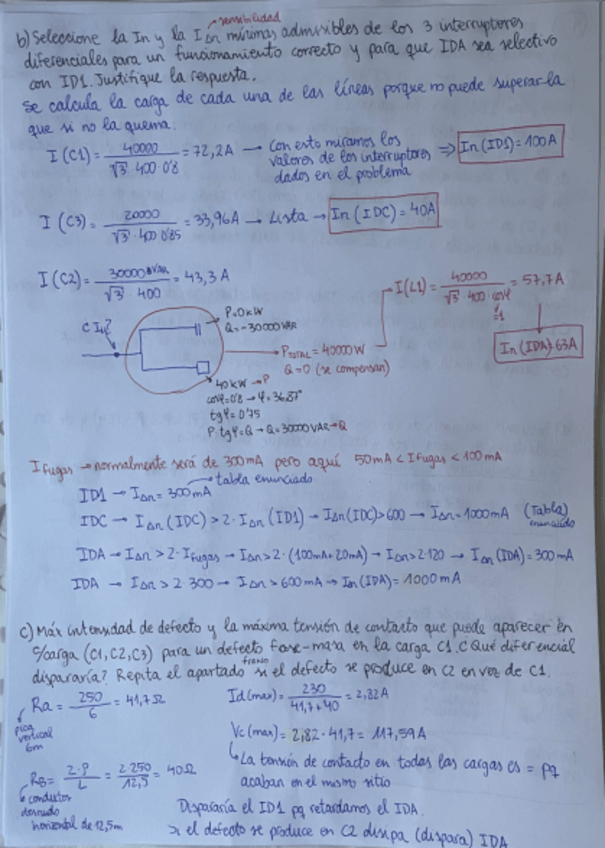 sensibilidad
b) Seleccione la In y la IΔn mínimas admisibles de los 3 interruptores
diferenciales para un funcionamiento correcto y para que IDA sea selectivo
con ID1. Justifique la respuesta.
Se calcula la carga de cada una de las líneas porque no puede superarla
que si no la quema.
I (C1) = 40000 / √3 · 400 · 0'8 = 72,2 A → Con esto miramos los valores de los interruptores dados en el problema ⇒ In (ID1) = 100 A
I (C3) = 20000 / √3 · 400 · 0'85 = 33,96 A → Lista → In (IDC) = 40A
I (C2) = 30000 VAR / √3 · 400 = 43,3 A
I (L1) = 40000 / √3 · 400 · cosφ = 57,7 A
=1
In (IDA) = 63A
P=0 kW
Q = 30000 VAR
PTOTAL = 40000 W
Q=0 (se compensan)
40 kW → P
cosφ=0'8 → φ = 36,87°
tgφ = 0'75
P · tgφ = Q → Q = 30000 VAR → Q
I fugas → normalmente será de 300 mA pero aquí 50 mA < Ifugas < 100 mA
tabla enunciado
ID1 → IΔn = 300 mA
IDC → IΔn (IDC) > 2 · IΔn (ID1) → IΔn (IDC) > 600 → IΔn = 1000 mA (Tabla) enunciado
IDA → IΔn > 2 · Ifugas → IΔn > 2 · (100mA + 20mA) → IΔn > 2 · 120 → IΔn (IDA) = 300 mA
IDA → IΔn > 2 · 300 → IΔn > 600 mA → In (IDA) = 1000 mA
c) Máx intensidad de defecto y la máxima tensión de contacto que puede aparecer en
c/carga (C1, C2, C3) para un defecto fase-masa en la carga C1. ¿Qué diferencial
dispararía? Repita el apartado si el defecto se produce en C2 en vez de C1.
franco
Ra = 250 / 6 = 41,7 Ω
pica
vertical
6m
Id (max) = 230 / 41,7 + 40 = 2,82 A
Vc (max) = 2,82 · 41,7 = 117,59 A
La tensión de contacto en todas las cargas es = pq
acaban en el mismo sitio
RB = 2·ρ / L = 2·250 / 12,5 = 40 Ω
conductor
desnudo
horizontal de 12,5m
Dispararía el ID1 pq retardamos el IDA.
Si el defecto se produce en C2 disipa (dispara) IDA